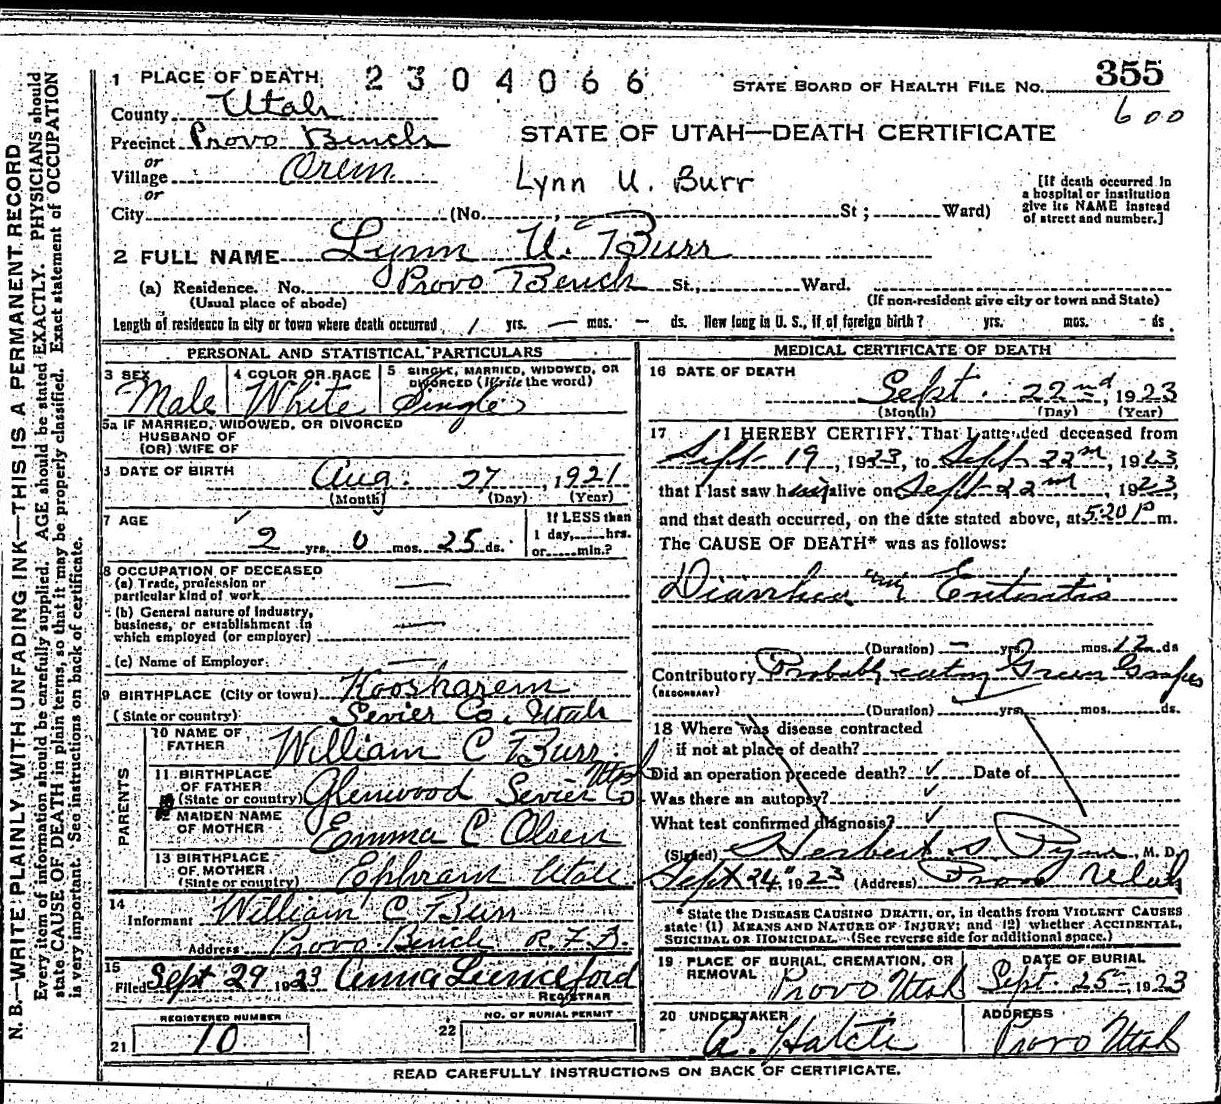 1 PLACE OF DEATH 2304066 STATE BOARD OF HEALTH FILE No. 355
County Utah 600
STATE OF UTAH—DEATH CERTIFICATE
Precinct Provo Bench
or
Village Orem
or
Lynn U. Burr
[If death occurred in a hospital or institution give its NAME instead of street and number.]
City (No. ; St ; Ward)
2 FULL NAME Lynn U. Burr
(a) Residence. No. Provo Bench St., Ward.
(Usual place of abode) (If non-resident give city or town and State)
Length of residence in city or town where death occurred 1 yrs. — mos. — ds. How long in U. S., if of foreign birth? yrs. mos. ds.
PERSONAL AND STATISTICAL PARTICULARS
3 SEX Male
4 COLOR OR RACE White
5 SINGLE, MARRIED, WIDOWED, OR DIVORCED (Write the word) Single
5a IF MARRIED, WIDOWED, OR DIVORCED
HUSBAND OF
(OR) WIFE OF
DATE OF BIRTH Aug. 27, 1921
(Month) (Day) (Year)
7 AGE 2 yrs. 0 mos. 25 ds.
If LESS than
1 day, hrs.
or min.?
8 OCCUPATION OF DECEASED
(a) Trade, profession or
particular kind of work —
(b) General nature of industry,
business, or establishment in
which employed (or employer) —
(c) Name of Employer —
9 BIRTHPLACE (City or town) Koosharem
(State or country) Sevier Co. Utah
PARENTS
10 NAME OF
FATHER William C Burr
11 BIRTHPLACE
OF FATHER
(State or country) Glenwood Sevier Co Utah
12 MAIDEN NAME
OF MOTHER Emma C Olsen
13 BIRTHPLACE
OF MOTHER
(State or country) Ephram Utah
14
Informant William C Burr
Address Provo Bench R.F.D.
15
Filed Sept 29 1923 Anna
REGISTRAR
REGISTERED NUMBER
21 10
NO. OF BURIAL PERMIT
22
MEDICAL CERTIFICATE OF DEATH
16 DATE OF DEATH
Sept. 22nd, 1923
(Month) (Day) (Year)
17 I HEREBY CERTIFY, That I attended deceased from
Sept. 19, 1923, to Sept 22nd, 1923,
that I last saw him alive on Sept 22nd, 1923,
and that death occurred, on the date stated above, at 5:20 P m.
The CAUSE OF DEATH* was as follows:
Diarrhea Enteritis
(Duration) — yrs. mos. 12 ds
Contributory Probably eating Green Grapes
(SECONDARY)
(Duration) yrs. mos. ds.
18 Where was disease contracted
if not at place of death?
Did an operation precede death? Date of
Was there an autopsy?
What test confirmed diagnosis?
(Signed) Herbert S. Pyne, M. D.
Sept 24" 1923 (Address) Provo Utah
* State the DISEASE CAUSING DEATH, or, in deaths from VIOLENT CAUSES
state (1) MEANS AND NATURE OF INJURY; and (2) whether ACCIDENTAL,
SUICIDAL OR HOMICIDAL. (See reverse side for additional space.)
19 PLACE OF BURIAL, CREMATION, OR
REMOVAL Provo Utah
DATE OF BURIAL
Sept. 25, 1923
20 UNDERTAKER
A. Hatch
ADDRESS
Provo Utah
READ CAREFULLY INSTRUCTIONS ON BACK OF CERTIFICATE.
N. B.—WRITE PLAINLY WITH UNFADING INK—THIS IS A PERMANENT RECORD
Every item of information should be carefully supplied. AGE should be stated EXACTLY. PHYSICIANS should
state CAUSE OF DEATH in plain terms, so that it may be properly classified. Exact statement of OCCUPATION
is very important. See instructions on back of certificate.